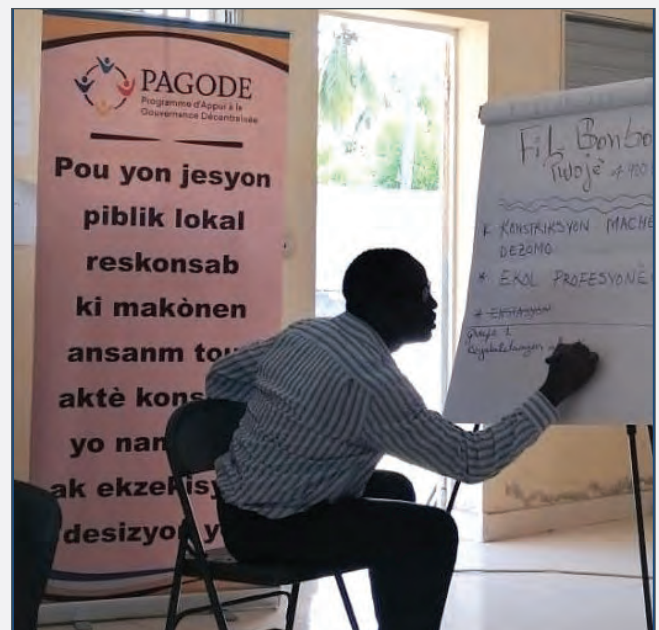 PAGODE
Programme d'Appui à la
Gouvernance Décentralisée
Pou yon jesyon
piblik lokal
reskonsab
ki makònen
ansanm tou
aktè kons
yo nan
ak ekzekisy
desizyon y
Fil Bonbo
Pwojè
* KONSTRIKSYON MACHE
DEZOMO
* EKOL PROFESYONÈ